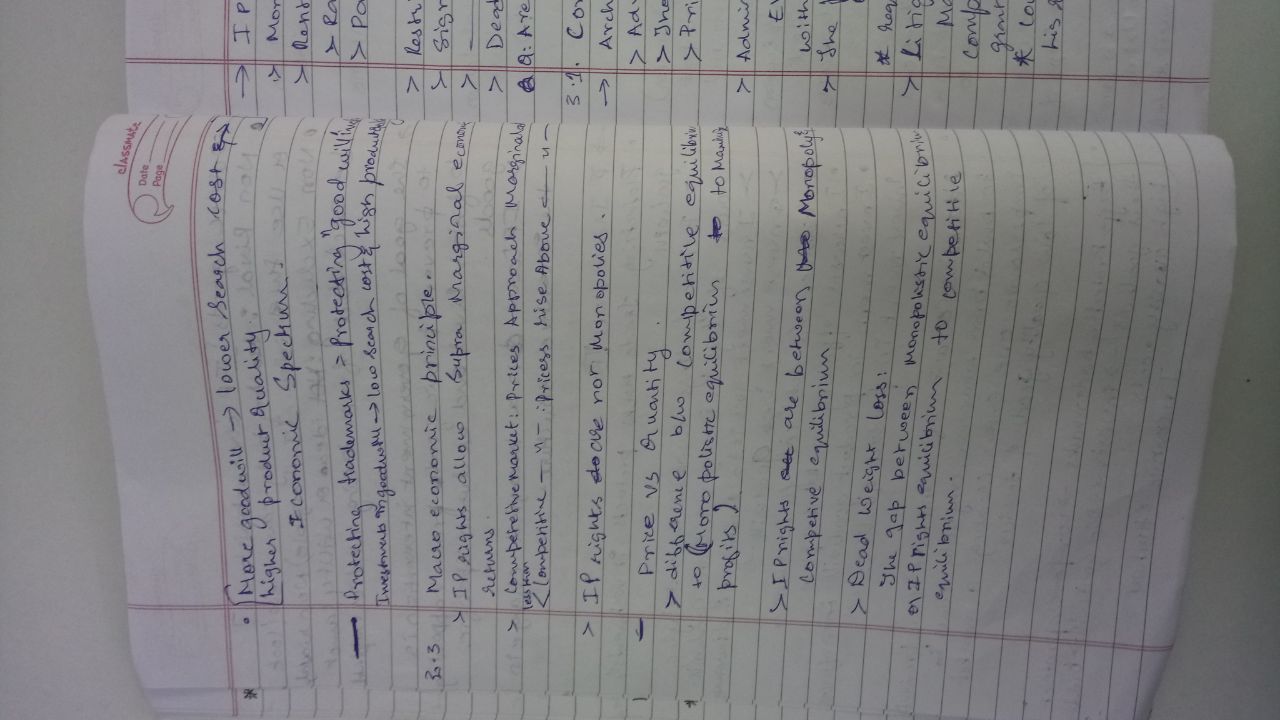 classmate
Date
Page
* • More goodwill → lower search cost &
higher product quality.
Economic Spectrum.
— Protecting trademarks > protecting "goodwill"
Investments in goodwill → low search cost & high product
2.3 Macro economic principle.
> IP rights allow Supra Marginal econom
returns.
> Competitive market: prices Approach Marginal
less than
< Competitive — " — : pricess rise Above — " —
> IP rights do are not Monopolies.
— Price vs Quantity.
* > difference b/w competitive equilibriu
to (Monopolistic equilibrium to to Maximi
profits)
> IP rights are are between Monopoly &
Competive equilibrium.
> Dead Weight Loss:
The gap between Monopolistic equilibriu
or IP rights equilibrium to competitie
equilibrium.
→ IP
> Mon
> Rent
> Ra
> Pa
> Resti
> Sign
> —
> Dead
Q: Are
3.1. Con
→ Arch
> Adv
> The
> Pri
> Admin
Ev
with
> The
* Req
> Litig
Ma
Comp
grant
* Cou